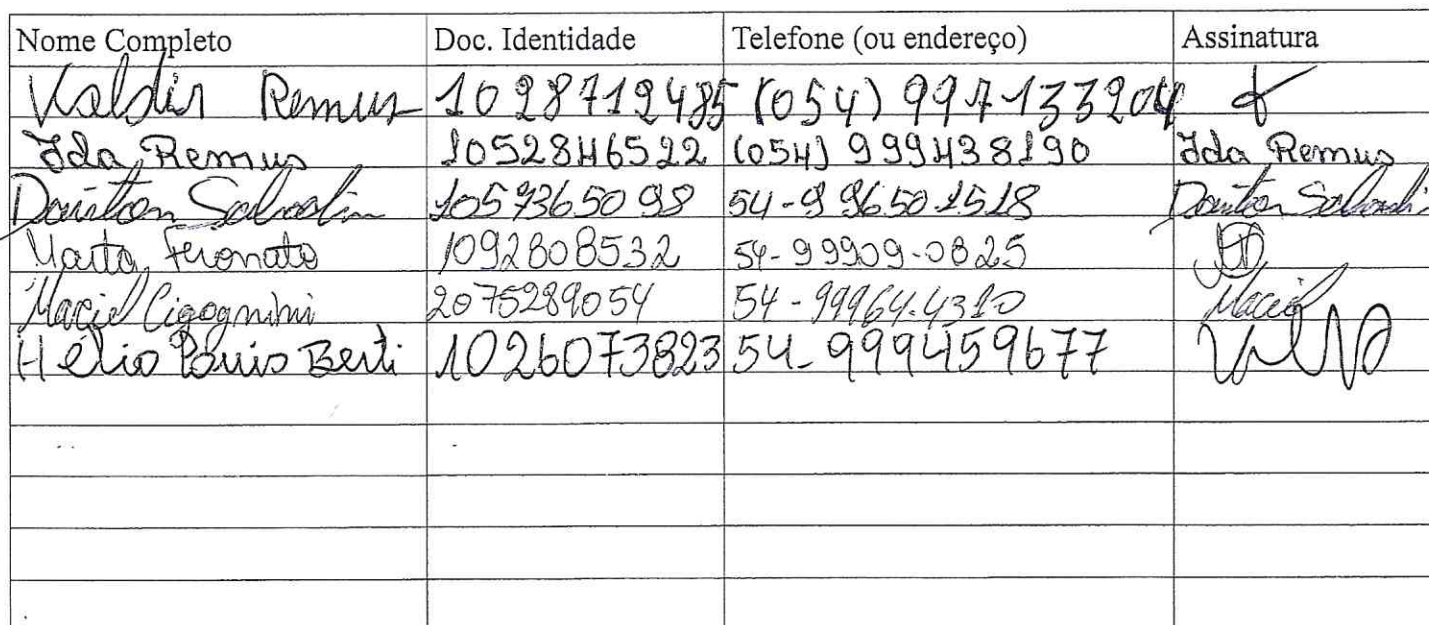 Nome Completo Doc. Identidade Telefone (ou endereço) Assinatura
Valdir Remus 1028712485 (054) 997133204
Ida Remus 1052846522 (054) 999438190 Ida Remus
1057365098 54-996501518
Marta Feronato 1092808532 54-99909-0825
Maciel Cigognini 2075289054 54-99964.4310 Maciel
Hélio Louis Berti 1026073823 54-999459677